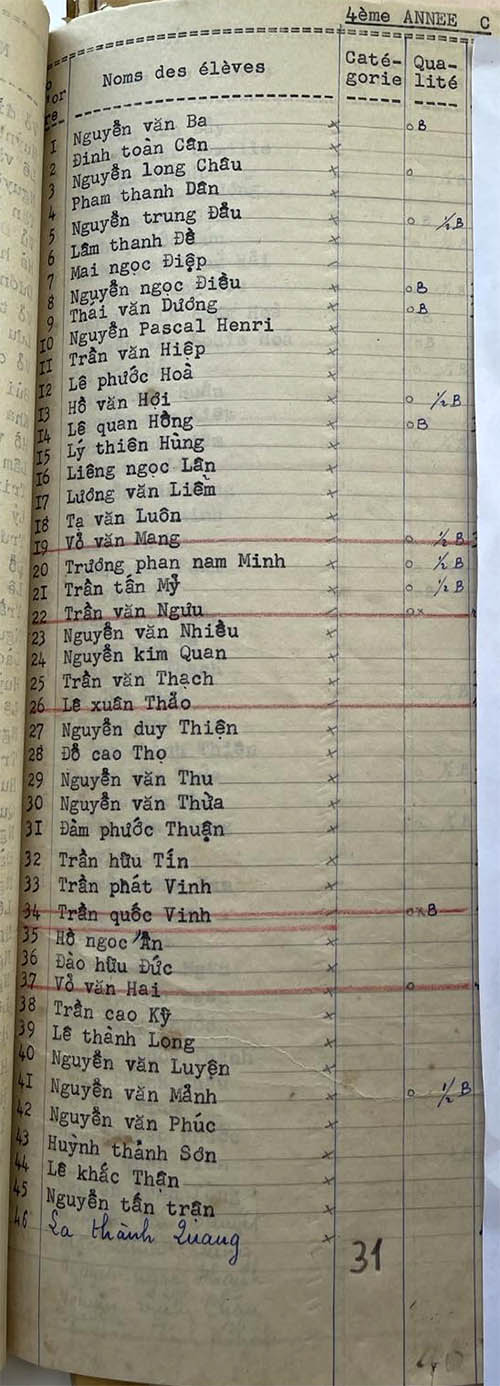 4ème ANNEE C
Noms des élèves Caté- Qua-
gorie lité
1 Nguyễn văn Ba x o B
2 Đinh toàn Cân x
3 Nguyễn long Châu x o
4 Phạm thanh Dân x
5 Nguyễn trung Đẩu x o ½ B
6 Lâm thanh Đề x
7 Mai ngọc Điệp
8 Nguyễn ngọc Điều x o B
9 Thái văn Dương x o B
10 Nguyễn Pascal Henri x
11 Trần văn Hiệp x
12 Lê phước Hoà x
13 Hồ văn Hợi x o ½ B
14 Lê quan Hồng x o B
15 Lý thiên Hùng x
16 Liêng ngọc Lân x
17 Lương văn Liềm x
18 Tạ văn Luôn x
19 Vỏ văn Mang o ½ B
20 Trương phan nam Minh x o ½ B
21 Trần tấn Mỹ x o ½ B
22 Trần văn Ngưu o x
23 Nguyễn văn Nhiều x
24 Nguyễn kim Quan x
25 Trần văn Thạch x
26 Lê xuân Thảo
27 Nguyễn duy Thiện x
28 Đỗ cao Thọ x
29 Nguyễn văn Thu x
30 Nguyễn văn Thừa x
31 Đàm phước Thuận x
32 Trần hữu Tín x
33 Trần phát Vinh x
34 Trần quốc Vinh x o x B
35 Hồ ngọc Ân x
36 Đào hữu Đức x
37 Vỏ văn Hai x o
38 Trần cao Kỹ x
39 Lê thành Long x
40 Nguyễn văn Luyện x
41 Nguyễn văn Mảnh x o ½ B
42 Nguyễn văn Phúc x
43 Huỳnh thảnh Sơn x
44 Lê khắc Thận x
45 Nguyễn tấn trận x
46 La thành Quang x
31